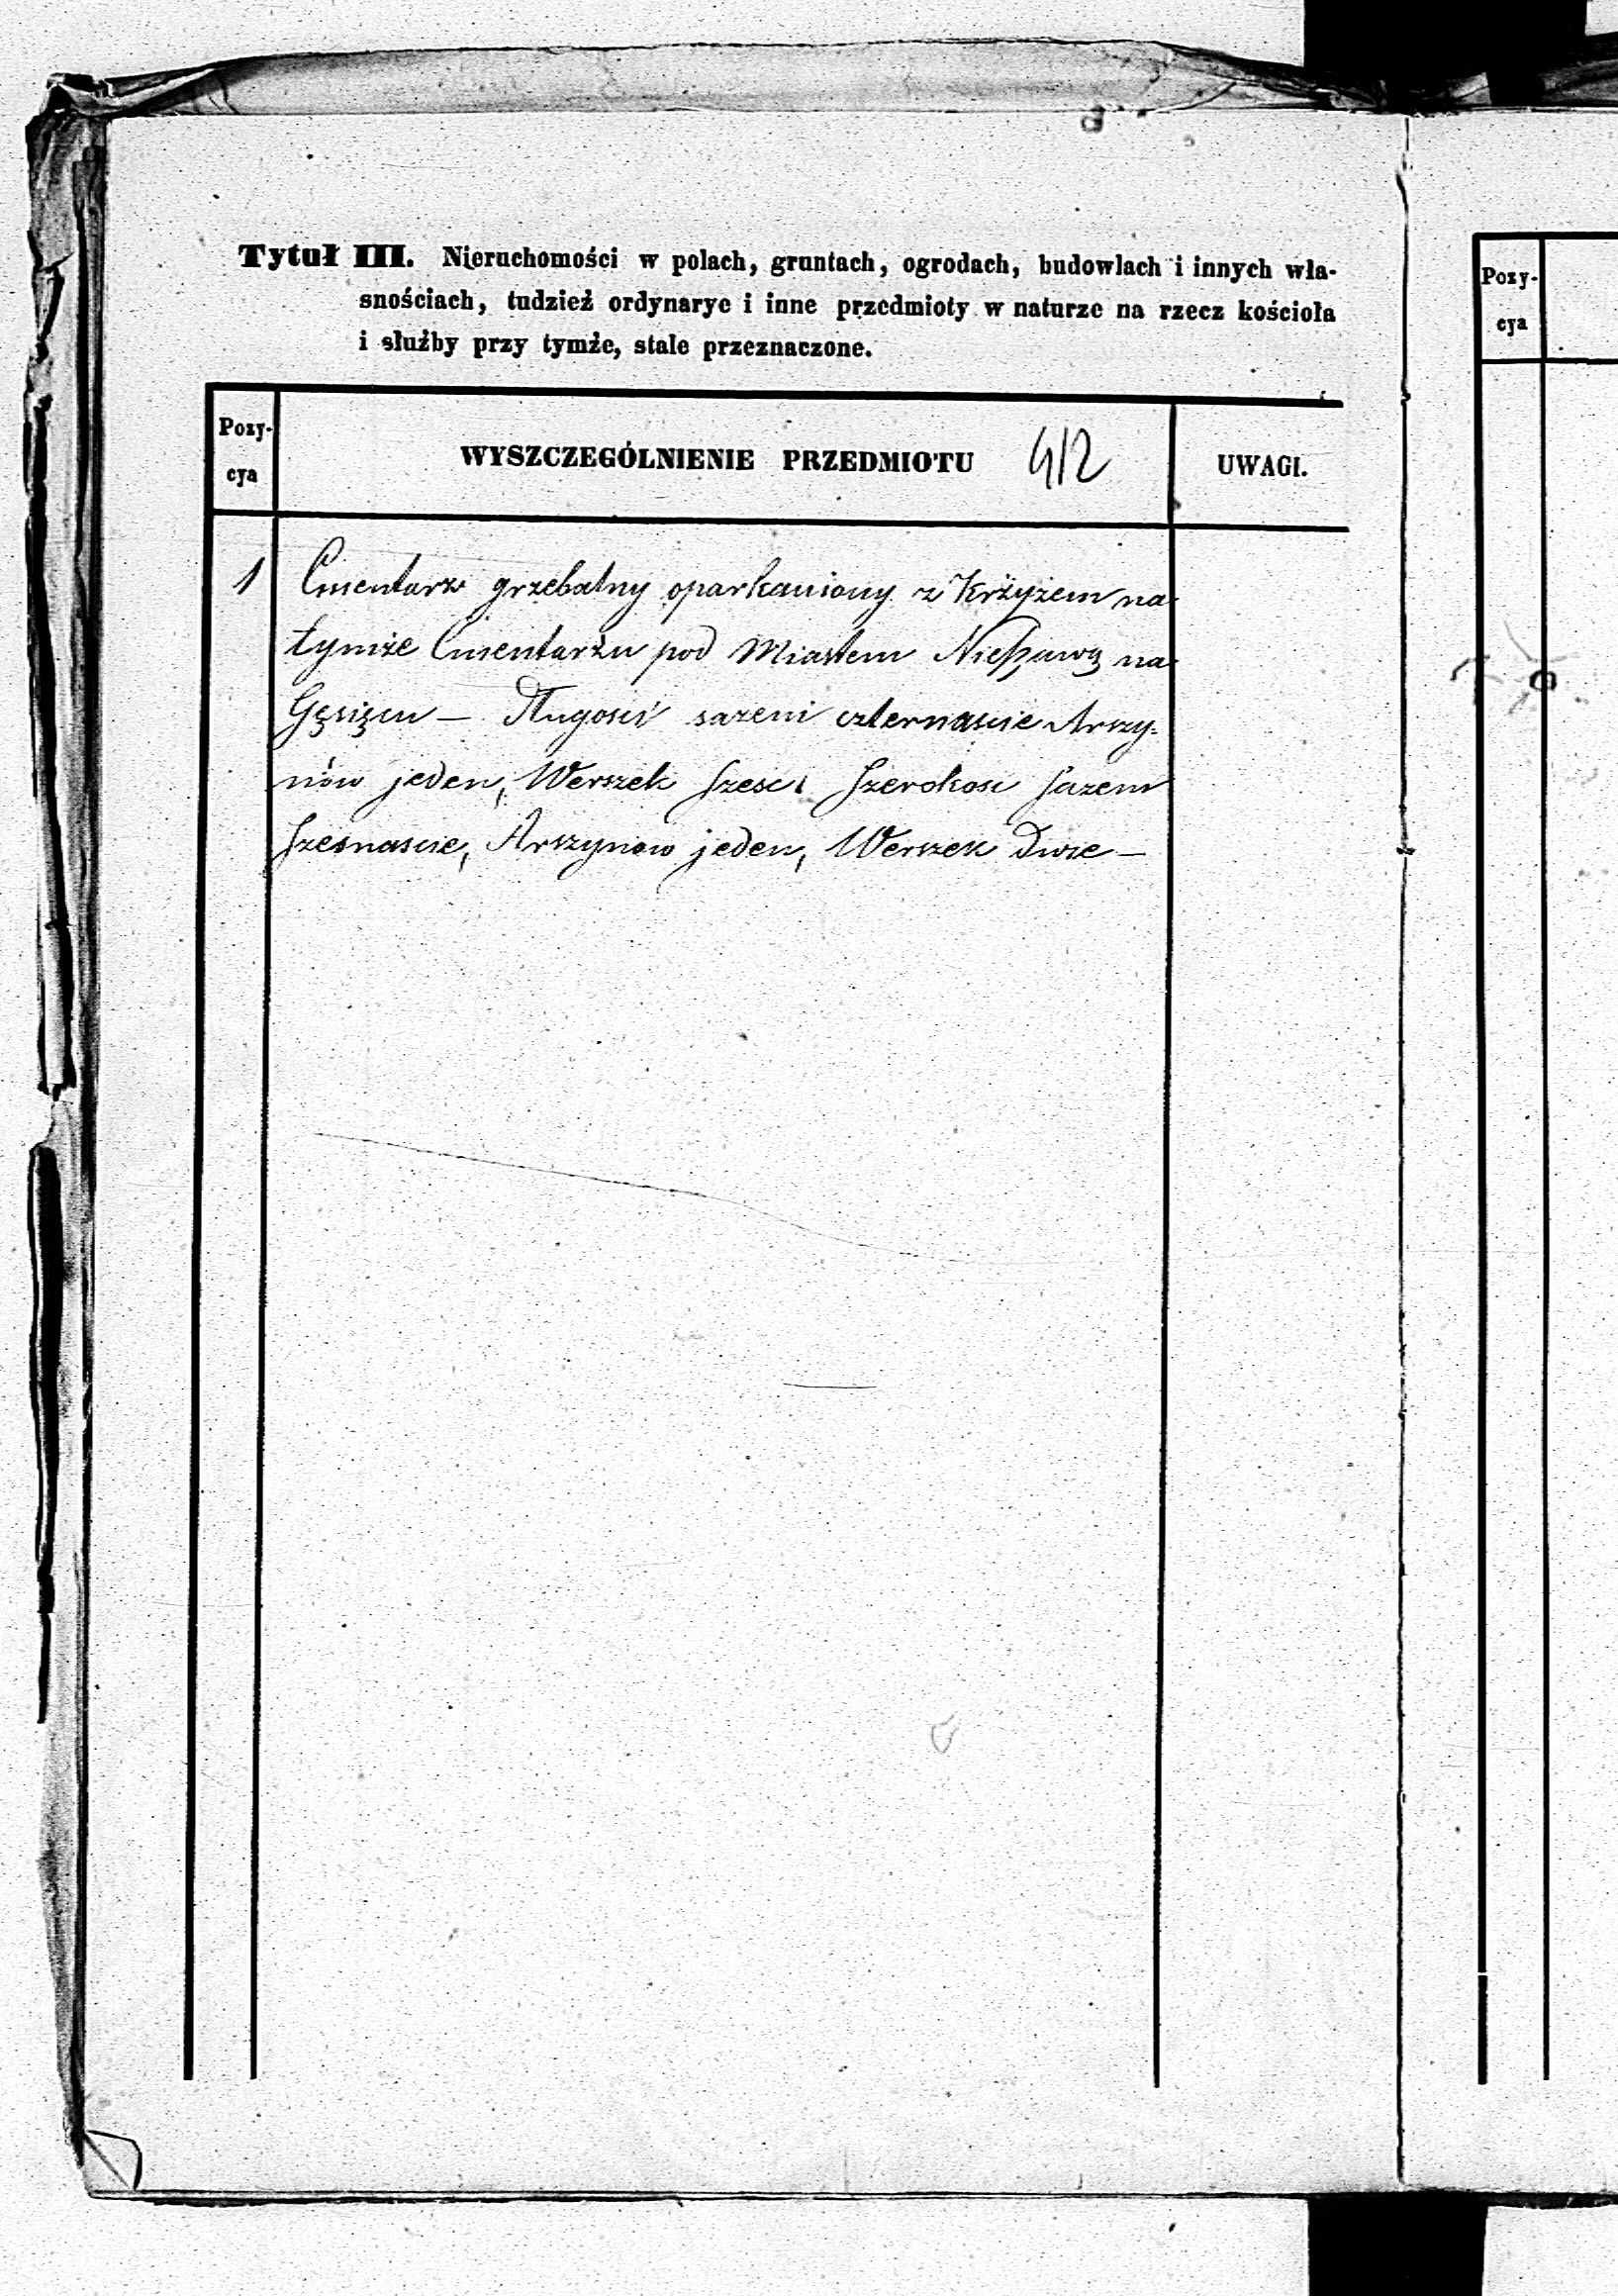 Tytuł III. Nieruchomości w polach, gruntach, ogrodach, budowlach i innych wła-
snościach, tudzież ordynarye i inne przedmioty w naturze na rzecz kościoła
i służby przy tymże, stale przeznaczone.
Pozy-
cya
WYSZCZEGÓLNIENIE PRZEDMIOTU 412
UWAGI.
1 Cmentarz grzebalny oparkaniony z Krzyżem na
tymże Cmentarzu pod Miastem Nieszawą na
Długości sazeni czternascie Arszy-
nów jeden, Werszek szesc. Szerokosc sazeni
szesnascie, Arszynow jeden, Werszek Dwie —
Pozy-
cya